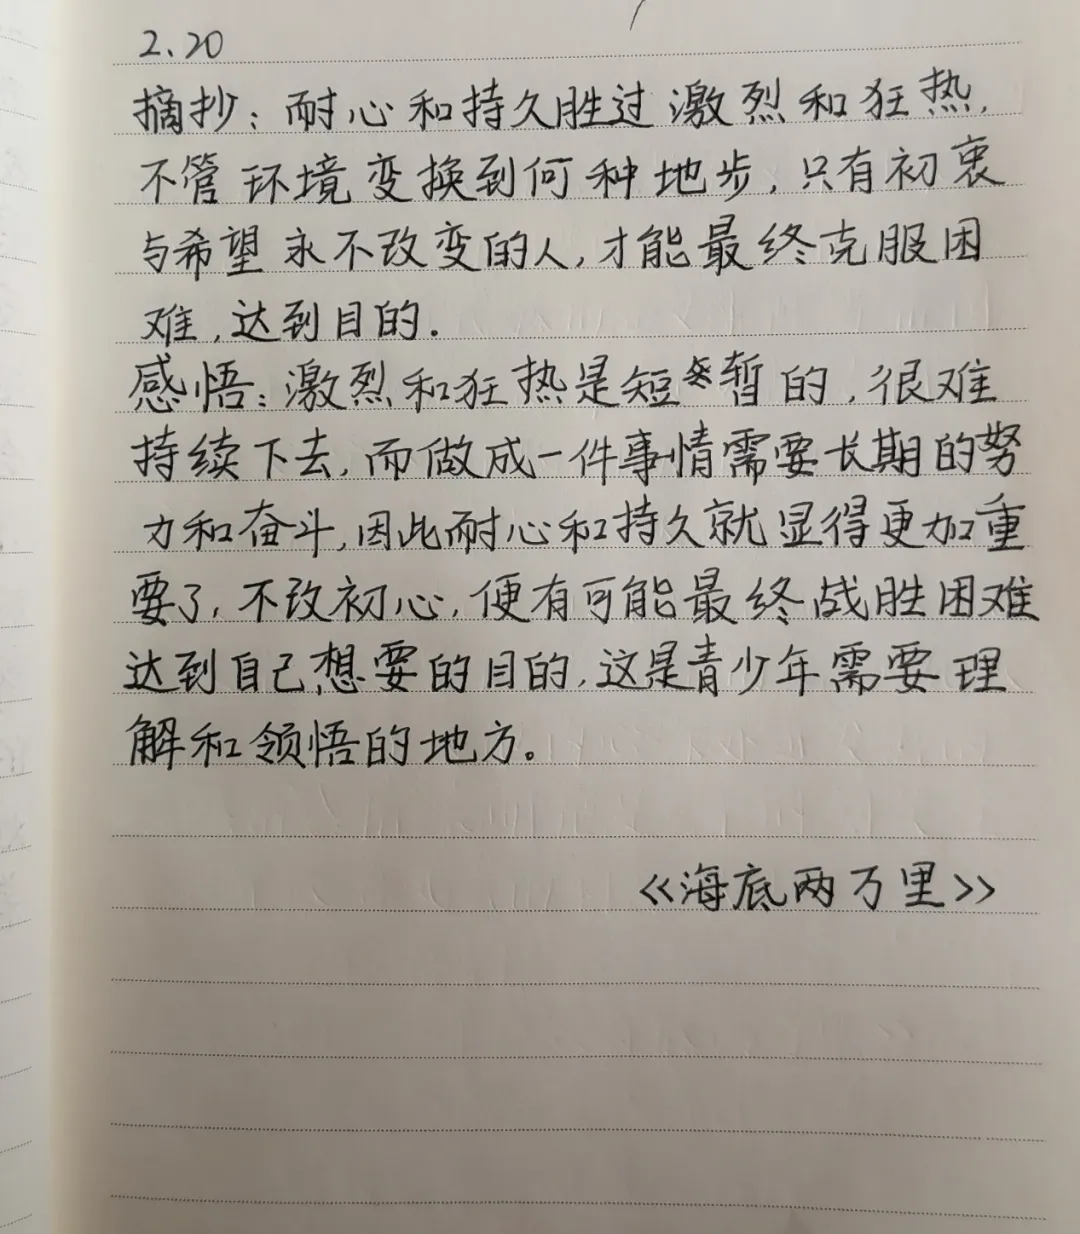 2.20
摘抄：耐心和持久胜过激烈和狂热，
不管环境变换到何种地步，只有初衷
与希望永不改变的人，才能最终克服困
难，达到目的.
感悟：激烈和狂热是短暂的，很难
持续下去，而做成一件事情需要长期的努
力和奋斗，因此耐心和持久就显得更加重
要了，不改初心，便有可能最终战胜困难
达到自己想要的目的，这是青少年需要理
解和领悟的地方。
《海底两万里》